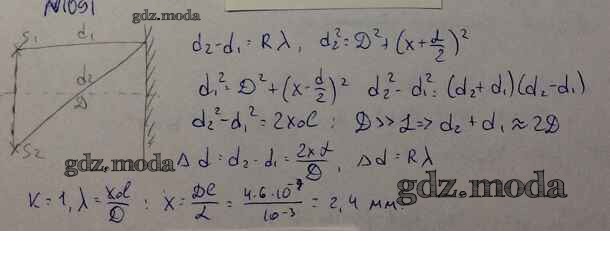 N1091
gdz.moda
S₁ d₁
d₂
D
S₂
d₂-d₁ = Rλ, d₂² = D² + (x+d/2)²
d₁² = D² + (x-d/2)² d₂² - d₁² = (d₂+d₁)(d₂-d₁)
d₂² - d₁² = 2xd ; D >> L => d₂ + d₁ ≈ 2D
gdz.moda
Δd = d₂ - d₁ = 2xd/D, Δd = Rλ
gdz.moda
K = 1, λ = xd/D ; x = Dl/L = 4.6·10⁻⁷/10⁻³ = 2,4 мм.